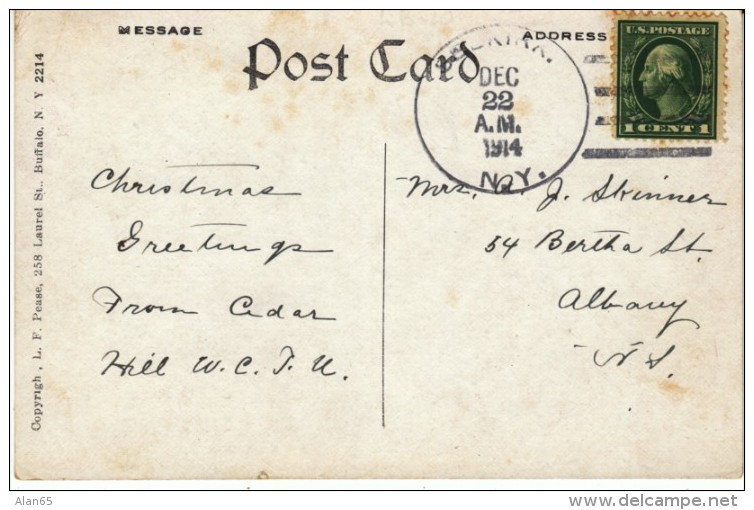 MESSAGE
ADDRESS
Post Card
SELKIRK.
DEC
22
A.M.
1914
N.Y.
U.S. POSTAGE
1 CENT 1
Christmas
Greetings
From Cedar
Hill W. C. T. U.
Mrs. A. J. Skinner
54 Bertha St.
Albany
N. Y.
Copyrigh, L. F. Pease, 258 Laurel St., Buffalo, N. Y 2214
Alan65
delcampe.net